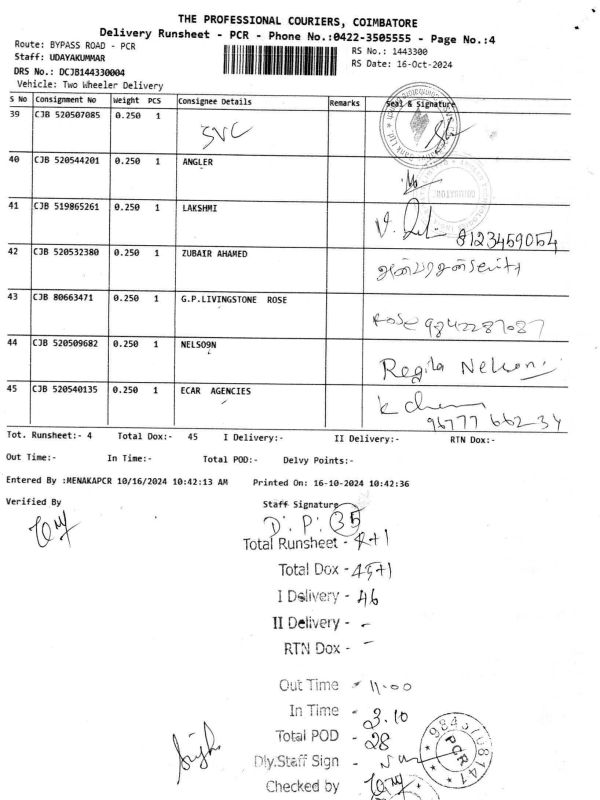 THE PROFESSIONAL COURIERS, COIMBATORE
Delivery Runsheet - PCR - Phone No.:0422-3505555 - Page No.:4
Route: BYPASS ROAD - PCR
RS No.: 1443300
Staff: UDAYAKUMMAR
RS Date: 16-Oct-2024
DRS No.: DCJB144330004
Vehicle: Two Wheeler Delivery
S No Consignment No Weight PCS Consignee Details Remarks Seal & Signature
39 CJB 520507085 0.250 1 SVC
40 CJB 520544201 0.250 1 ANGLER
41 CJB 519865261 0.250 1 LAKSHMI
8123459054
42 CJB 520532380 0.250 1 ZUBAIR AHAMED
43 CJB 80663471 0.250 1 G.P.LIVINGSTONE ROSE
Rose 9842287087
44 CJB 520509682 0.250 1 NELSO9N
Regila Nelson
45 CJB 520540135 0.250 1 ECAR AGENCIES
96777 662-34
Tot. Runsheet:- 4 Total Dox:- 45 I Delivery:- II Delivery:- RTN Dox:-
Out Time:- In Time:- Total POD:- Delvy Points:-
Entered By :MENAKAPCR 10/16/2024 10:42:13 AM Printed On: 16-10-2024 10:42:36
Verified By Staff Signature
D. P: 35
Total Runsheet - 4+1
Total Dox - 45+1
I Delivery - 46
II Delivery - -
RTN Dox - -
Out Time - 11.00
In Time - 3.10
Total POD - 28
Dly.Staff Sign -
Checked by
PCR